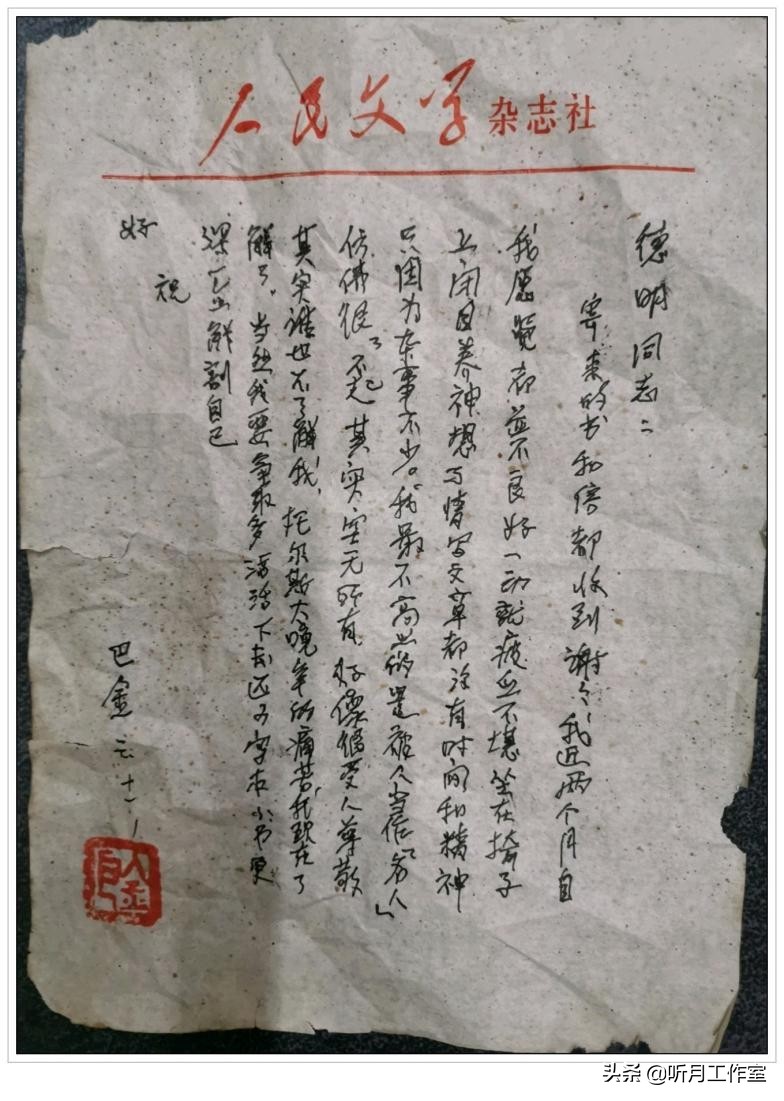 人民文学杂志社
德明同志：
寄来的书和信都收到谢谢，我近两个月自
我感觉都並不良好一动就疲乏不堪坐在掎子
上闭目养神想写情写文章都没有时间和精神
只因为杂事不少。我最不高兴的是被人当作“名人”
仿佛很了不起 其实实无所有，好像很受人尊敬
其实谁也不了解我，托尔斯大晚年的痛苦，我现在了
解了。当然我要争取多活活下去 字 小书更
深 解剖自己
祝
好
巴金 三十一
巴金
头条 @听月工作室